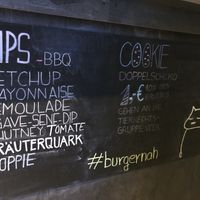 IPS -BBQ
ETCHUP
AYONNAISE
EMOULADE
GAVE-SENF-DIP
HUTNEY TOMATE
RÄUTERQUARK
OPPIE
COOKIE
DOPPELSCHOKO
1,-€
GEHEN AN DIE
TIERRECHTS-
GRUPPE
#burgernah